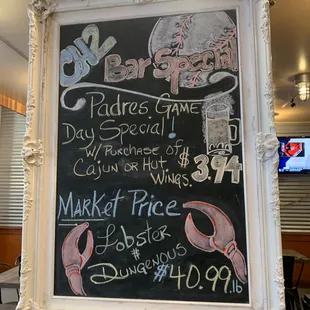 Bar Special
Padres Game
Day Special!
w/ Purchase of
Cajun or Hot
Wings. $3.94
Market Price
Lobster
&
Dungenous
$40.99 lb